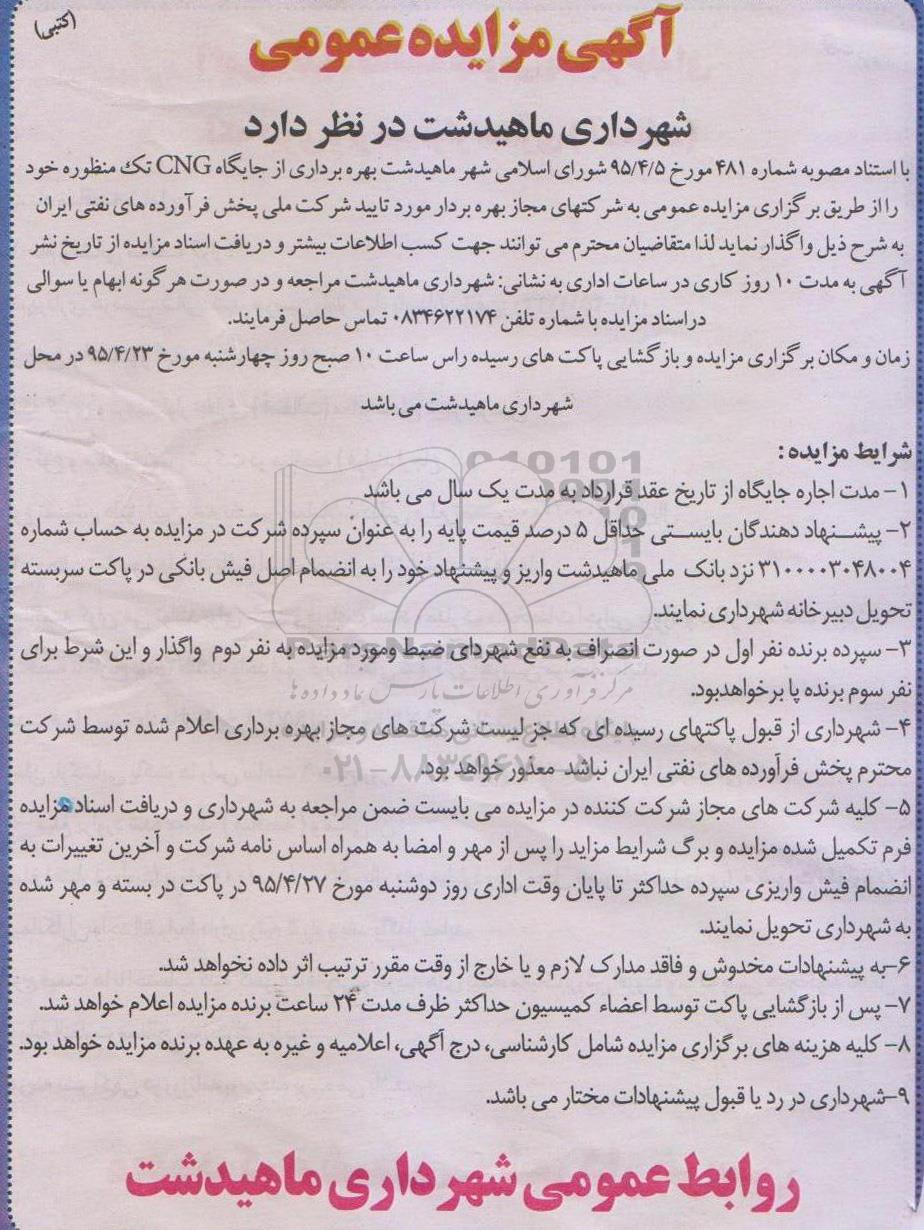 (کتبی)
آگهی مزایده عمومی
شهرداری ماهیدشت در نظر دارد
با استناد مصوبه شماره ۴۸۱ مورخ ۹۵/۴/۵ شورای اسلامی شهر ماهیدشت بهره برداری از جایگاه CNG تک منظوره خود
را از طریق برگزاری مزایده عمومی به شرکتهای مجاز بهره بردار مورد تایید شرکت ملی پخش فرآورده های نفتی ایران
به شرح ذیل واگذار نماید لذا متقاضیان محترم می توانند جهت کسب اطلاعات بیشتر و دریافت اسناد مزایده از تاریخ نشر
آگهی به مدت ۱۰ روز کاری در ساعات اداری به نشانی: شهرداری ماهیدشت مراجعه و در صورت هرگونه ابهام یا سوالی
دراسناد مزایده با شماره تلفن ۰۸۳۴۶۲۲۱۷۴ تماس حاصل فرمایند.
زمان و مکان برگزاری مزایده و بازگشایی پاکت های رسیده راس ساعت ۱۰ صبح روز چهارشنبه مورخ ۹۵/۴/۲۳ در محل
شهرداری ماهیدشت می باشد
شرایط مزایده :
۱- مدت اجاره جایگاه از تاریخ عقد قرارداد به مدت یک سال می باشد
۲- پیشنهاد دهندگان بایستی حداقل ۵ درصد قیمت پایه را به عنوان سپرده شرکت در مزایده به حساب شماره
۳۱۰۰۰۰۳۰۴۸۰۰۴ نزد بانک ملی ماهیدشت واریز و پیشنهاد خود را به انضمام اصل فیش بانکی در پاکت سربسته
تحویل دبیرخانه شهرداری نمایند.
۳- سپرده برنده نفر اول در صورت انصراف به نفع شهردای ضبط ومورد مزایده به نفر دوم واگذار و این شرط برای
نفر سوم برنده پا برخواهدبود.
۴- شهرداری از قبول پاکتهای رسیده ای که جز لیست شرکت های مجاز بهره برداری اعلام شده توسط شرکت
محترم پخش فرآورده های نفتی ایران نباشد معذور خواهد بود.
۵- کلیه شرکت های مجاز شرکت کننده در مزایده می بایست ضمن مراجعه به شهرداری و دریافت اسناد مزایده
فرم تکمیل شده مزایده و برگ شرایط مزاید را پس از مهر و امضا به همراه اساس نامه شرکت و آخرین تغییرات به
انضمام فیش واریزی سپرده حداکثر تا پایان وقت اداری روز دوشنبه مورخ ۹۵/۴/۲۷ در پاکت در بسته و مهر شده
به شهرداری تحویل نمایند.
۶-به پیشنهادات مخدوش و فاقد مدارک لازم و یا خارج از وقت مقرر ترتیب اثر داده نخواهد شد.
۷- پس از بازگشایی پاکت توسط اعضاء کمیسیون حداکثر ظرف مدت ۲۴ ساعت برنده مزایده اعلام خواهد شد.
۸- کلیه هزینه های برگزاری مزایده شامل کارشناسی، درج آگهی، اعلامیه و غیره به عهده برنده مزایده خواهد بود.
۹-شهرداری در رد یا قبول پیشنهادات مختار می باشد.
روابط عمومی شهرداری ماهیدشت